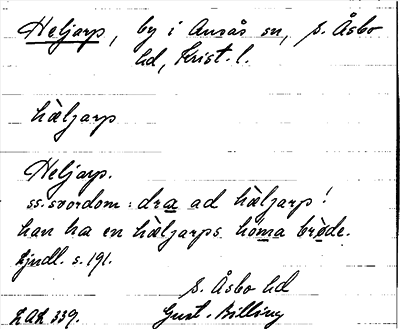 Heljarp, by i Ausås sn, S. Åsbo
hd, Krist. l.
hàljarp
Heljarp.
ss. svordom: dra ad hàljarp!
han ha en hàljarps homa bröde.
Ljndl. s. 191.
S. Åsbo hd
LAL 339. Gust. Billing